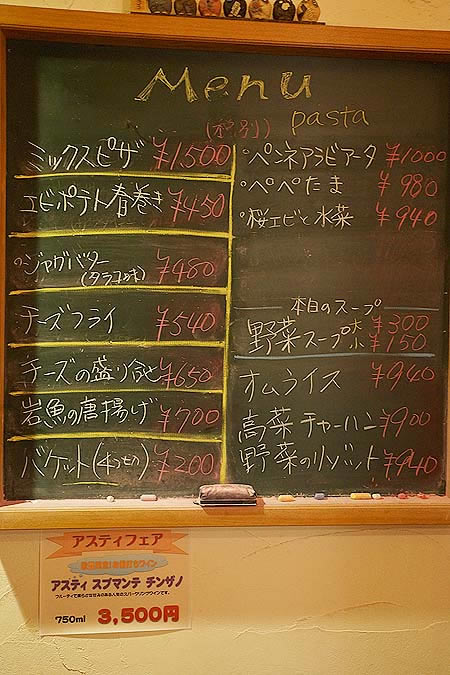 Menu
(税別)
pasta
ミックスピザ ¥1,500
エビポテト春巻き ¥450
ジャガバター ¥480
(タラコのせ)
チーズフライ ¥540
チーズの盛り合せ ¥650
岩魚の唐揚げ ¥700
バゲット(4つせの) ¥200
ペンネアラビアータ ¥1000
ペペたま ¥980
桜エビと水菜 ¥940
本日のスープ
野菜スープ 大 ¥300
小 ¥150
オムライス ¥940
高菜チャーハン ¥900
野菜のリゾット ¥940
アスティフェア
アスティ スプマンテ チンザノ
750ml 3,500円